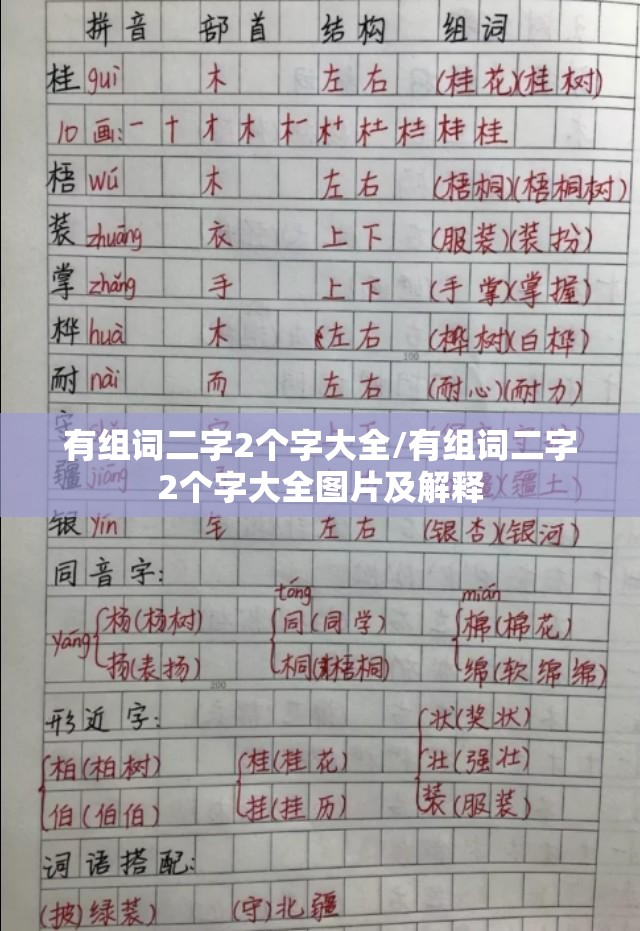 拼音 部首 结构 组词
桂 guì 木 左右 (桂花)(桂树)
10画:一 十 才 木 木一 木十 木土 桂 桂 桂
梧 wú 木 左右 (梧桐)(梧桐树)
装 zhuāng 衣 上下 (服装)(装扮)
掌 zhǎng 手 上下 (手掌)(掌握)
桦 huà 木 左右 (桦树)(白桦)
耐 nài 而 左右 (耐心)(耐力)
守
有组词二字2个字大全/有组词二字
疆 jiāng 疆土)
2个字大全图片及解释
银 yín 钅 左右 (银杏)(银河)
同音字:
yáng 杨(杨树) tóng 同(同学) mián 棉(棉花)
扬(表扬) 桐(梧桐) 绵(软绵绵)
200
形近字:
柏(柏树) 桂(桂花) 状(奖状)
伯(伯伯) 挂(挂历) 壮(强壮)
装(服装)
词语搭配:
(披)绿装) (守)北疆